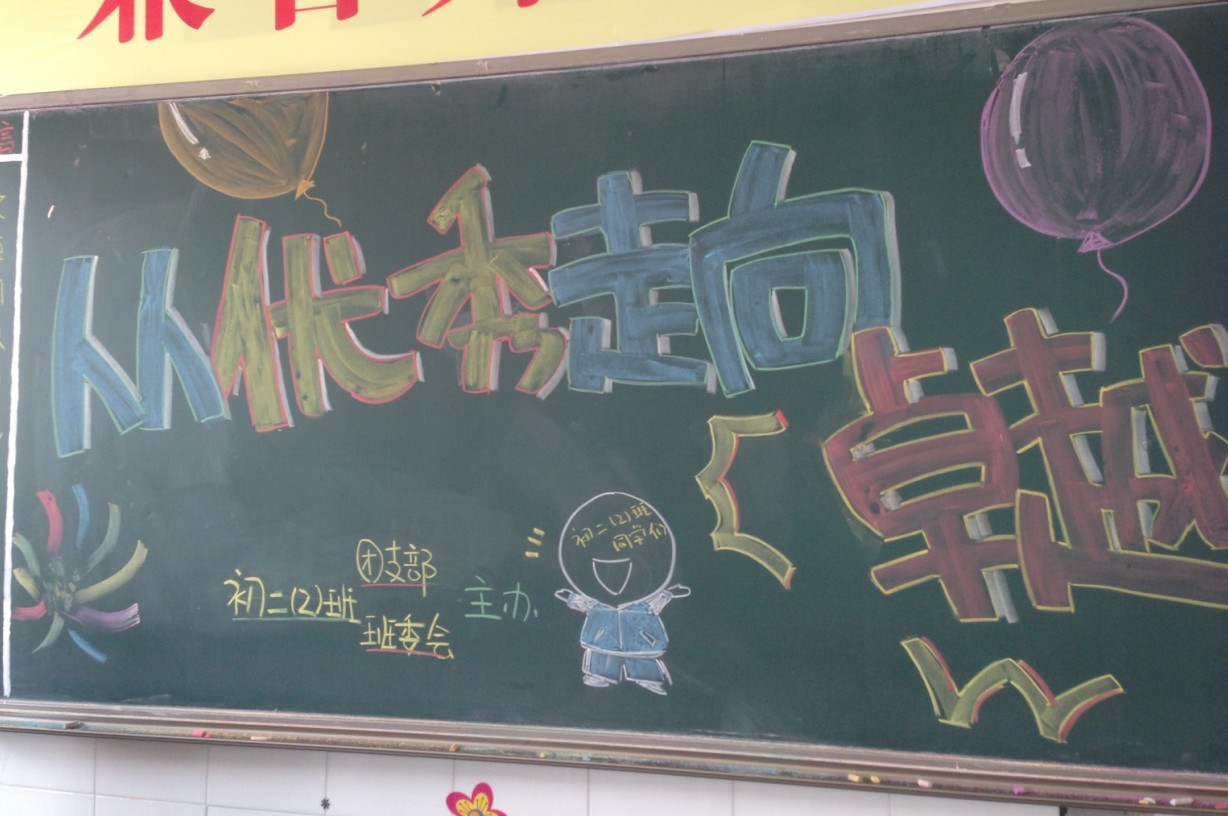 从优秀走向
卓越
初二(2)班
同学们
团支部
初二(2)班 主办
班委会